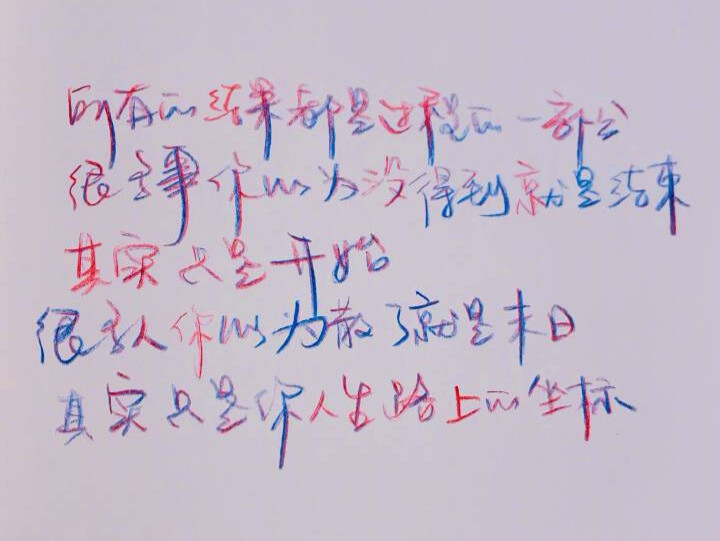 所有的结果都是过程的一部分
很多事你以为没得到就是结束
其实只是开始
很多人你以为散了就是末日
其实只是你人生路上的坐标